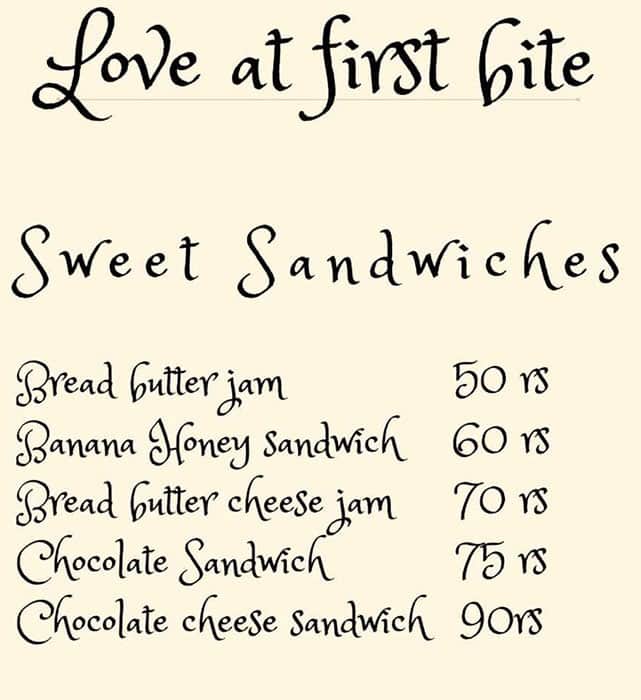 Love at first bite
Sweet Sandwiches
Bread butter jam 50 rs
Banana Honey sandwich 60 rs
Bread butter cheese jam 70 rs
Chocolate Sandwich 75 rs
Chocolate cheese sandwich 90rs